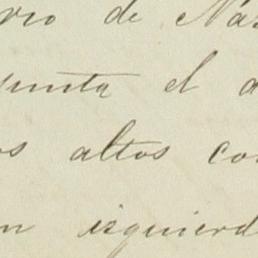 rio de Na
punta el a
os altos co
n izquierd